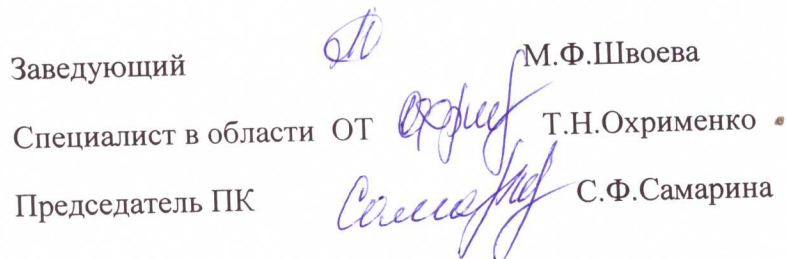 Заведующий М.Ф.Швоева
Специалист в области ОТ Т.Н.Охрименко
Председатель ПК С.Ф.Самарина